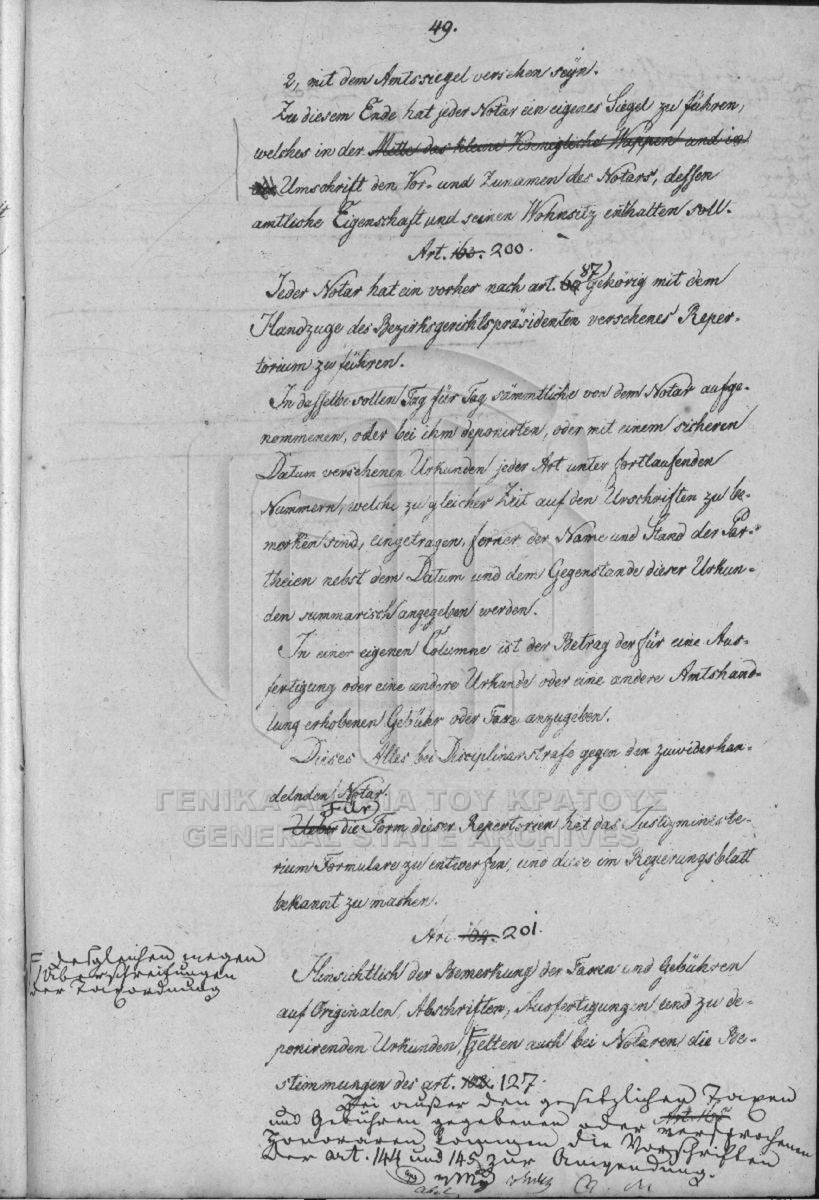 49.
2, mit dem Amtssiegel versehen seÿn.
Zu diesem Ende hat jeder Notar ein eigenes Siegel zu führen,
welches in der Mitte das kleine Koenigliche Wappen und in
Umschrift den Vor- und Zunamen des Notars, dessen
amtliche Eigenschaft und seinen Wohnsitz enthalten soll.
Art. 200.
Jeder Notar hat ein vorher nach art. 87 Gehörig mit dem
Handzuge des Bezirksgerichtspräsidenten versehenes Reper-
torium zu führen.
In dasselbe sollen Tag für Tag sämmtliche von dem Notar aufge-
nommenen, oder bei ihm deponirten, oder mit einem sicheren
Datum versehenen Urkunden jeder Art unter fortlaufenden
Nummern, welche zu gleicher Zeit auf den Urschriften zu be-
merken sind, eingetragen, ferner der Name und Stand der Par-
theien nebst dem Datum und dem Gegenstande dieser Urkun-
den summarisch angegeben werden.
In einer eigenen Columne ist der Betrag der für eine Aus-
fertigung oder eine andere Urkunde oder eine andere Amtshand-
lung erhobenen Gebühr oder Taxe anzugeben.
Dieses Alles bei Disciplinarstrafe gegen den zuwiderhan-
delnden Notar.
Für
Ueber die Form dieser Repertorien hat das Justizministe-
rium Formulare zu entwerfen, und diese im Regierungsblatt
bekannt zu machen.
ΓΕΝΙΚΑ ΑΡΧΕΙΑ ΤΟΥ ΚΡΑΤΟΥΣ
GENERAL STATE ARCHIVES
Art. 201.
desgleichen wegen
Überschreitungen
der Taxordnung
Hinsichtlich der Bemerkung der Taxen und Gebühren
auf Originalen, Abschriften, Ausfertigungen und zu de-
ponirenden Urkunden, gelten auch bei Notaren die Be-
stimmungen des art. 127.
Bei außer den gesetzlichen Taxen
Art. 165
und Gebühren gegebenen oder versprochenen
Honoraren kommen die Vorschriften
der art. 144 und 145 zur Anwendung.